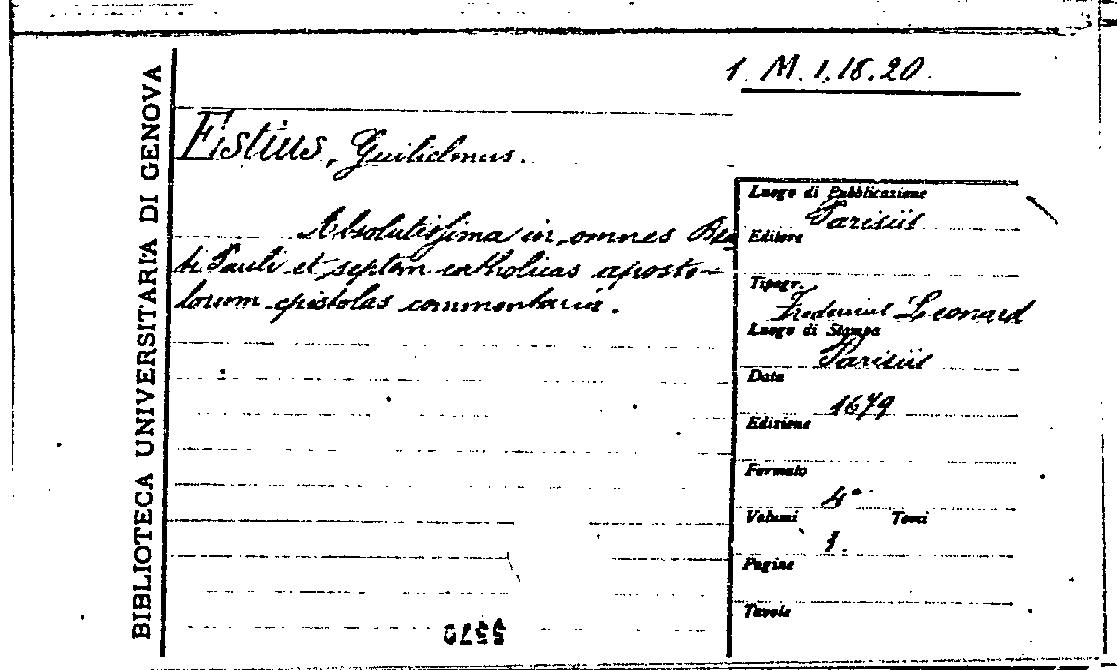 BIBLIOTECA UNIVERSITARIA DI GENOVA
1. M. 1. 18. 20.
Estius, Guilielmus.
Absolutissima in omnes Bea
ti Pauli et septem catholicas aposto-
lorum epistolas commentaria.
Luogo di Pubblicazione
Parisiis
Editore
Tipogr.
Fredericus Leonard
Luogo di Stampa
Parisiis
Data
1679
Edizione
Formato
4°
Volumi Tomi
1.
Pagine
Tavole
5570